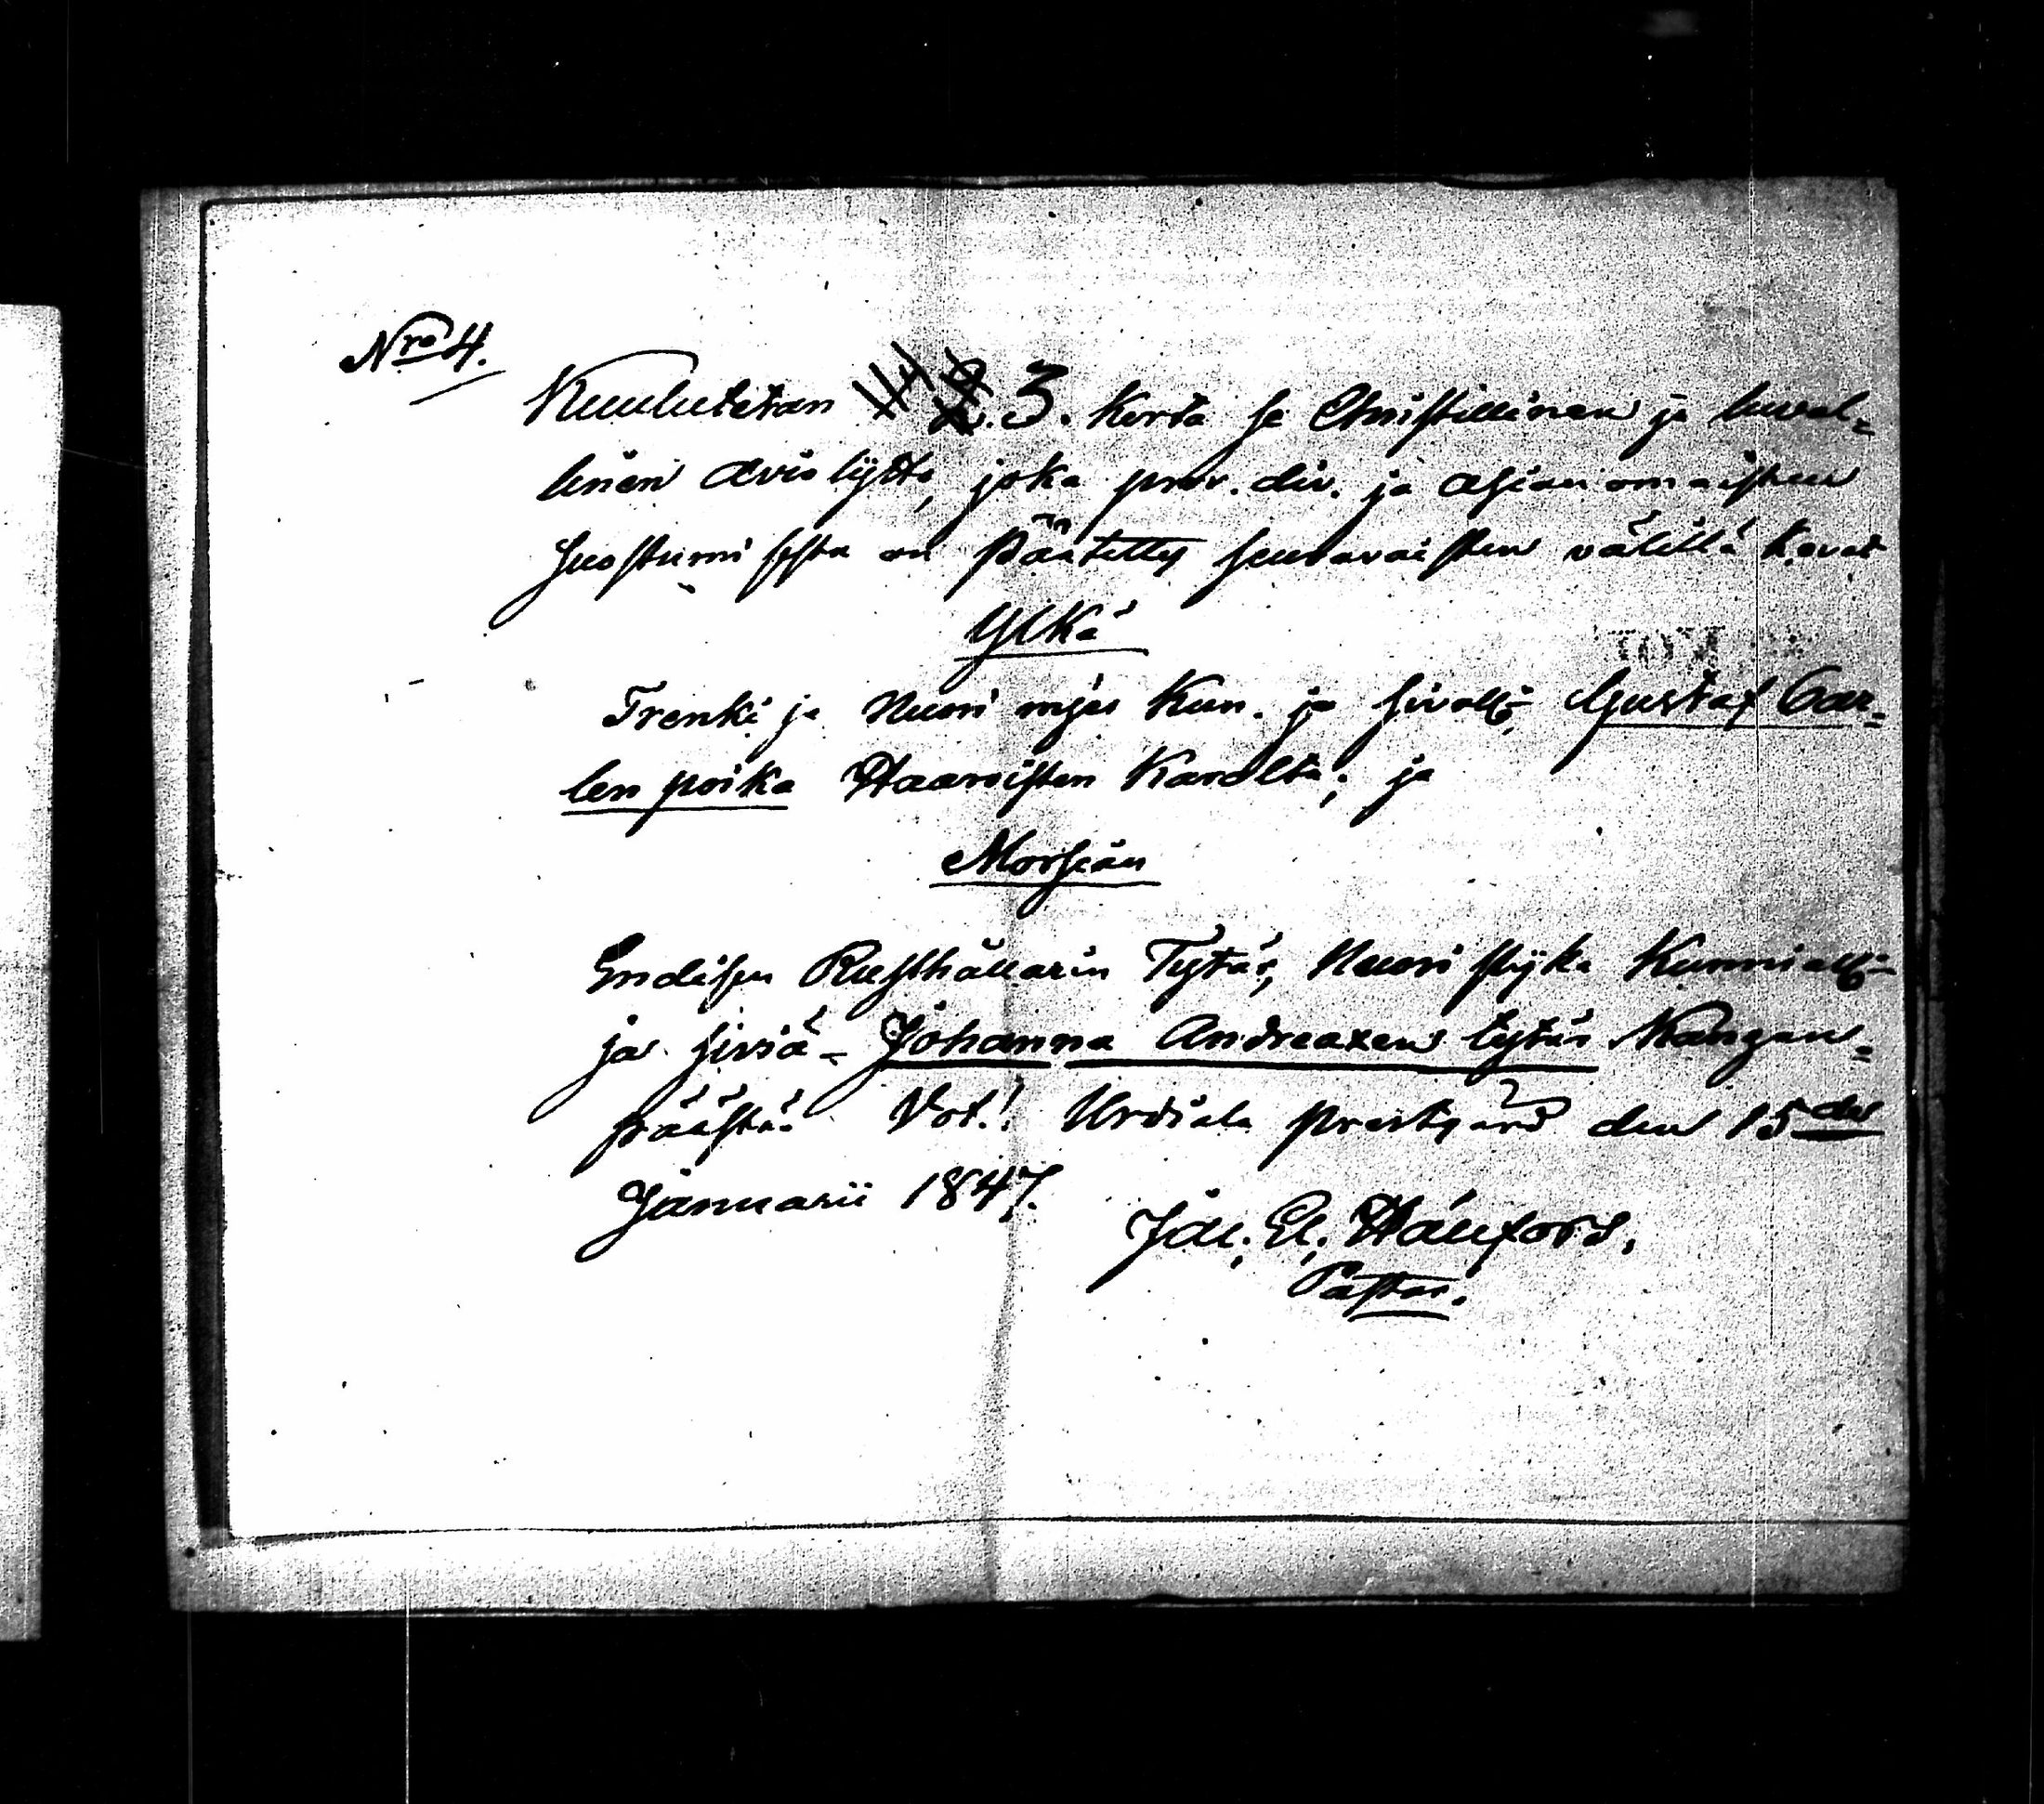 Nro 4.
Kuulutetan 3. Kerta se Christillinen ja luval-
linen Aviokjtto, joka prov. div. ja Asianomaisten
suostumisesta on Päätetty seuravaisten välillä Kovat
Ylkä
Trenki ja Nuori mjes Kun. ja sivoll. Gustaf Car-
len poika Haaroisten Karolta; ja
Morsian
Endisen Rusthållarin Tytär, Nuori pijka Kunniall.
ja siviä - Johanna Andreaxen tytär Kangan-
päästä. Vot! Urdiala prestgård den 15de
Januarii 1847.
Jac. El. Hällfors.
Pastor.